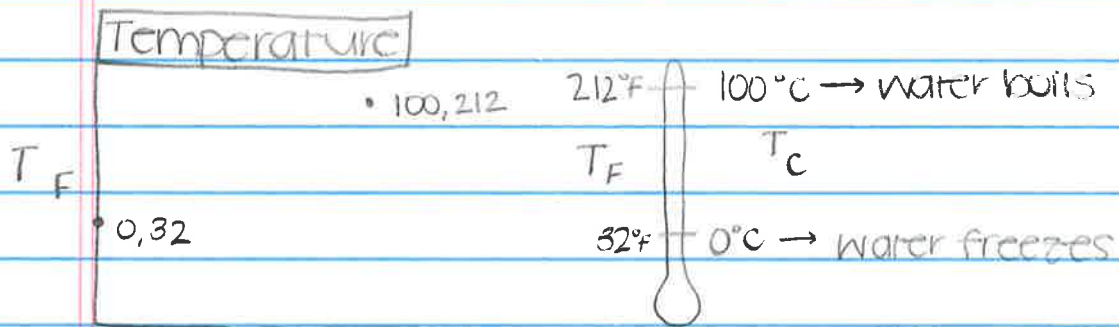 Temperature
• 100,212
212°F
100°C → water boils
T F
T F
T C
0,32
32°F
0°C → water freezes